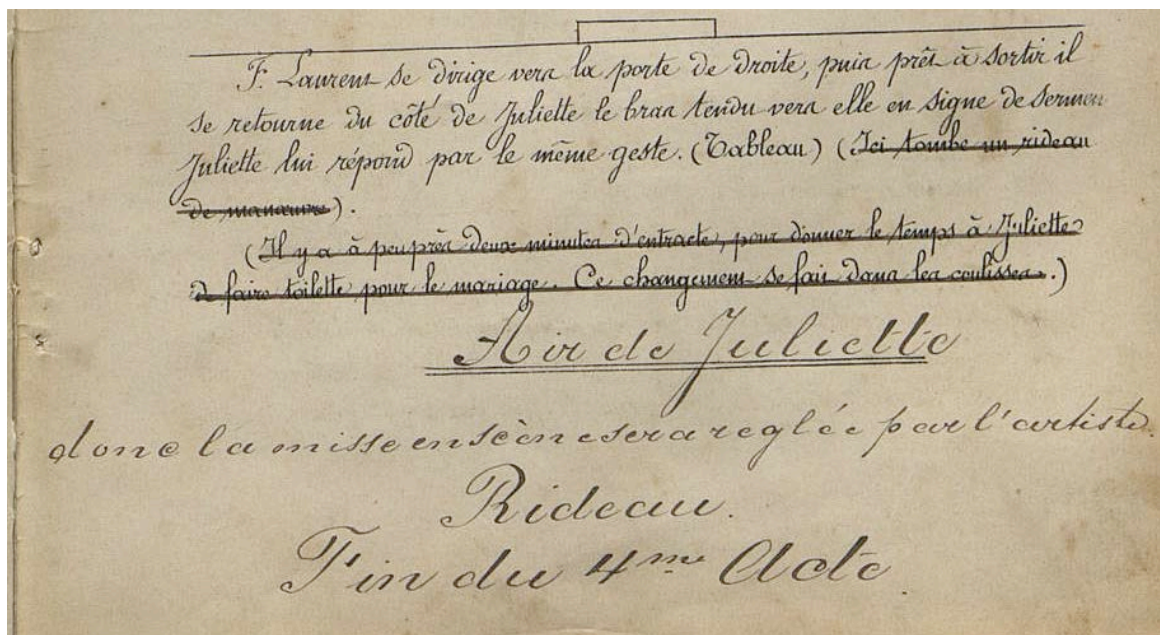 F. Laurent se dirige vers la porte de droite, puis prêt à sortir il
se retourne du côté de Juliette le bras tendu vers elle en signe de sermen
Juliette lui répond par le même geste. (Tableau) (Ici tombe un rideau
de manœuvre).
(Il y a à peu près deux minutes d'entracte, pour donner le temps à Juliette
de faire toilette pour le mariage. Ce changement se fait dans les coulisses.)
Air de Juliette
donc la misse en scène sera reglée par l'artiste.
Rideau.
Fin du 4me Acte